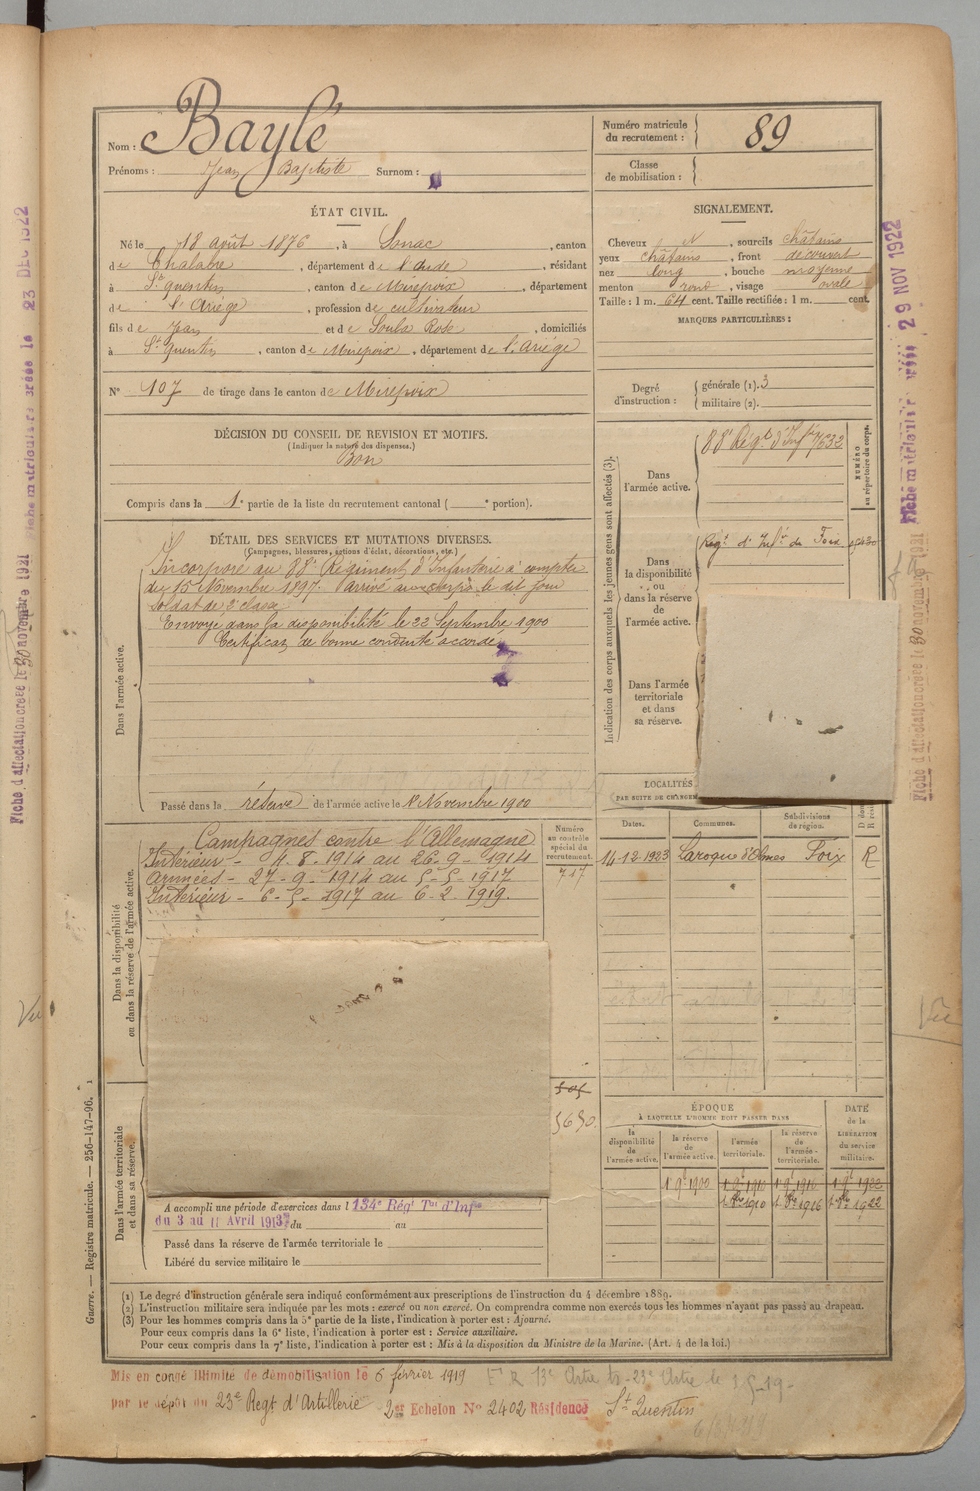 Nom : Baylé
Prénoms : Jean Baptiste Surnom :
Numéro matricule du recrutement : 89
Classe de mobilisation :
ÉTAT CIVIL.
Né le 18 août 1876, à Sonac, canton
de Chalabre, département de l'Aude, résidant
à St quentin, canton de Mirepoix, département
de l'Ariège, profession de cultivateur
fils de Jean et de Soula Rose, domiciliés
à St quentin, canton de Mirepoix, département de l'Ariège
N° 107 de tirage dans le canton de Mirepoix
SIGNALEMENT.
Cheveux et, sourcils châtains
yeux châtains, front découvert
nez long, bouche moyenne
menton rond, visage ovale
Taille : 1 m. 64 cent. Taille rectifiée : 1 m. cent.
MARQUES PARTICULIÈRES :
Degré d'instruction : générale (1). 3
militaire (2).
DÉCISION DU CONSEIL DE REVISION ET MOTIFS.
(Indiquer la nature des dispenses.)
Bon
Compris dans la 1e partie de la liste du recrutement cantonal ( e portion).
DÉTAIL DES SERVICES ET MUTATIONS DIVERSES.
(Campagnes, blessures, actions d'éclat, décorations, etc.)
Dans l'armée active.
Incorporé au 88e Régiment d'Infanterie à compter
du 15 Novembre 1897. Arrivé au corps le dit jour
soldat de 2e classe
Envoyé dans la disponibilité le 22 Septembre 1900
Certificat de bonne conduite accordé
Passé dans la réserve de l'armée active le 1er Novembre 1900
Indication des corps auxquels les jeunes gens sont affectés (3).
NUMÉRO au répertoire du corps.
Dans l'armée active.
88e Régt d'Infie 7632
Dans la disponibilité ou dans la réserve de l'armée active.
Régt d'Infie de Foix
Dans l'armée territoriale et dans sa réserve.
Dans la disponibilité ou dans la réserve de l'armée active.
Campagnes contre l'Allemagne
Intérieur - 4-8-1914 au 26-9-1914
Armées - 27-9-1914 au 5-5-1917
Intérieur - 6-5-1917 au 6-2-1919.
Numéro au contrôle spécial du recrutement.
717
505
5630
LOCALITÉS
PAR SUITE DE CHANGEM
Dates. Communes. Subdivisions de région. D dom R rési
14-12-1923 Laroque d'Olmes Foix R
Dans l'armée territoriale et dans sa réserve.
A accompli une période d'exercices dans l 134e Régt Tial d'Infie
du 3 au 11 Avril 1913 du au
Passé dans la réserve de l'armée territoriale le
Libéré du service militaire le
ÉPOQUE
À LAQUELLE L'HOMME DOIT PASSER DANS
la disponibilité de l'armée active. la réserve de l'armée active. l'armée territoriale. la réserve de l'armée territoriale.
DATE de la LIBÉRATION du service militaire.
1r 9bre 1900 1r 9bre 1910 1r 9bre 1916 1r 9bre 1922
1r 8bre 1910 1r 8bre 1916 1r 8bre 1922
(1) Le degré d'instruction générale sera indiqué conformément aux prescriptions de l'instruction du 4 décembre 1889.
(2) L'instruction militaire sera indiquée par les mots : exercé ou non exercé. On comprendra comme non exercés tous les hommes n'ayant pas passé au drapeau.
(3) Pour les hommes compris dans la 5e partie de la liste, l'indication à porter est : Ajourné.
Pour ceux compris dans la 6e liste, l'indication à porter est : Service auxiliaire.
Pour ceux compris dans la 7e liste, l'indication à porter est : Mis à la disposition du Ministre de la Marine. (Art. 4 de la loi.)
Mis en congé illimité de démobilisation le 6 février 1919
par le dépôt du 23e Regt d'Artillerie 2e Echelon N° 2402 Résidence St Quentin
Guerre. — Registre matricule. — 256-147-96. 1
Fiche d'affectation créée le 30 novembre 1921
Fiche matriculaire créée le 23 DEC 1922
Fiche matriculaire créée 29 NOV 1922
Fiche d'affectation créée le 30 novembre 1921
Vu
Vu